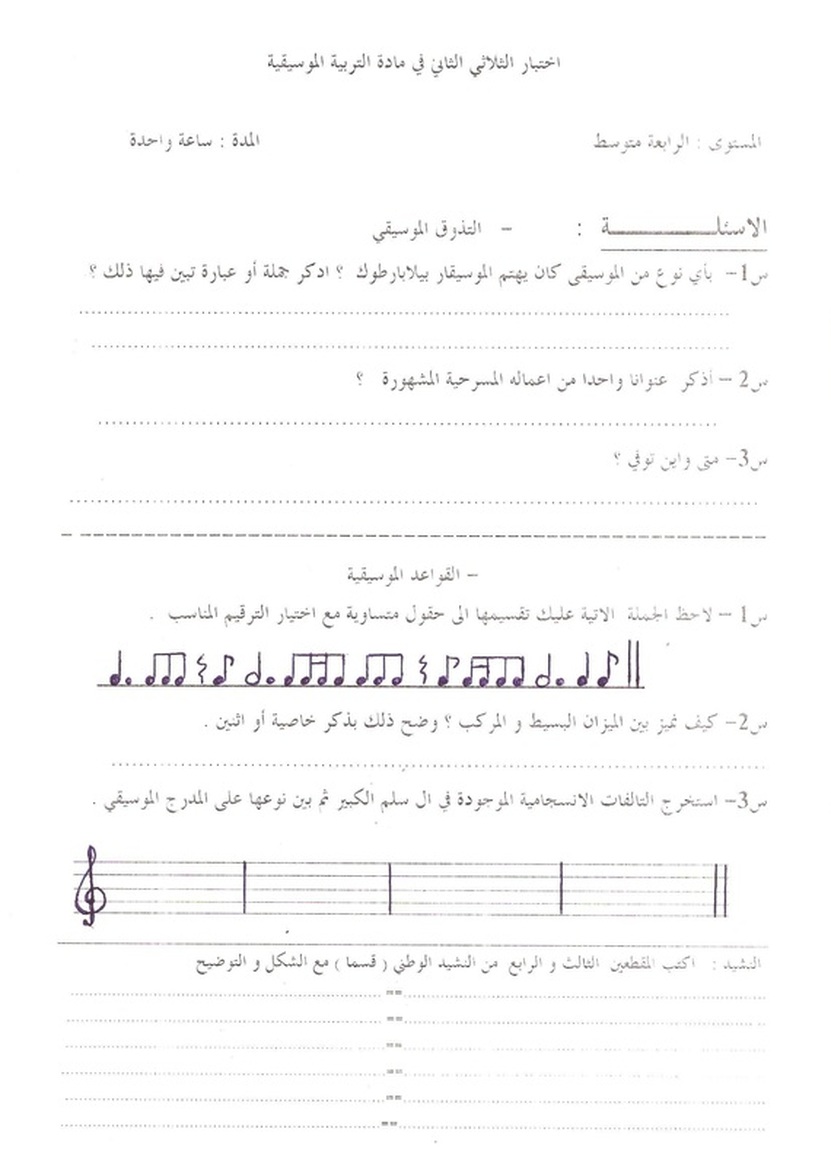 اختبار الثلاثي الثاني في مادة التربية الموسيقية
المستوى : الرابعة متوسط المدة : ساعة واحدة
الاسئلــــــــــــة : - التذوق الموسيقي
س1- بأي نوع من الموسيقى كان يهتم الموسيقار بيلابارطوك ؟ ادكر جملة أو عبارة تبين فيها ذلك ؟
س2 - أذكر عنوانا واحدا من اعماله المسرحية المشهورة ؟
س3- متى واين توفي ؟
- القواعد الموسيقية
س1 - لاحظ الجملة الاتية عليك تقسيمها الى حقول متساوية مع اختيار الترقيم المناسب .
س2- كيف تميز بين الميزان البسيط و المركب ؟ وضح ذلك بذكر خاصية أو اثنين .
س3- استخرج التالفات الانسجامية الموجودة في ال سلم الكبير ثم بين نوعها على المدرج الموسيقي .
النشيد : اكتب المقطعين الثالث و الرابع من النشيد الوطني ( قسما ) مع الشكل و التوضيح